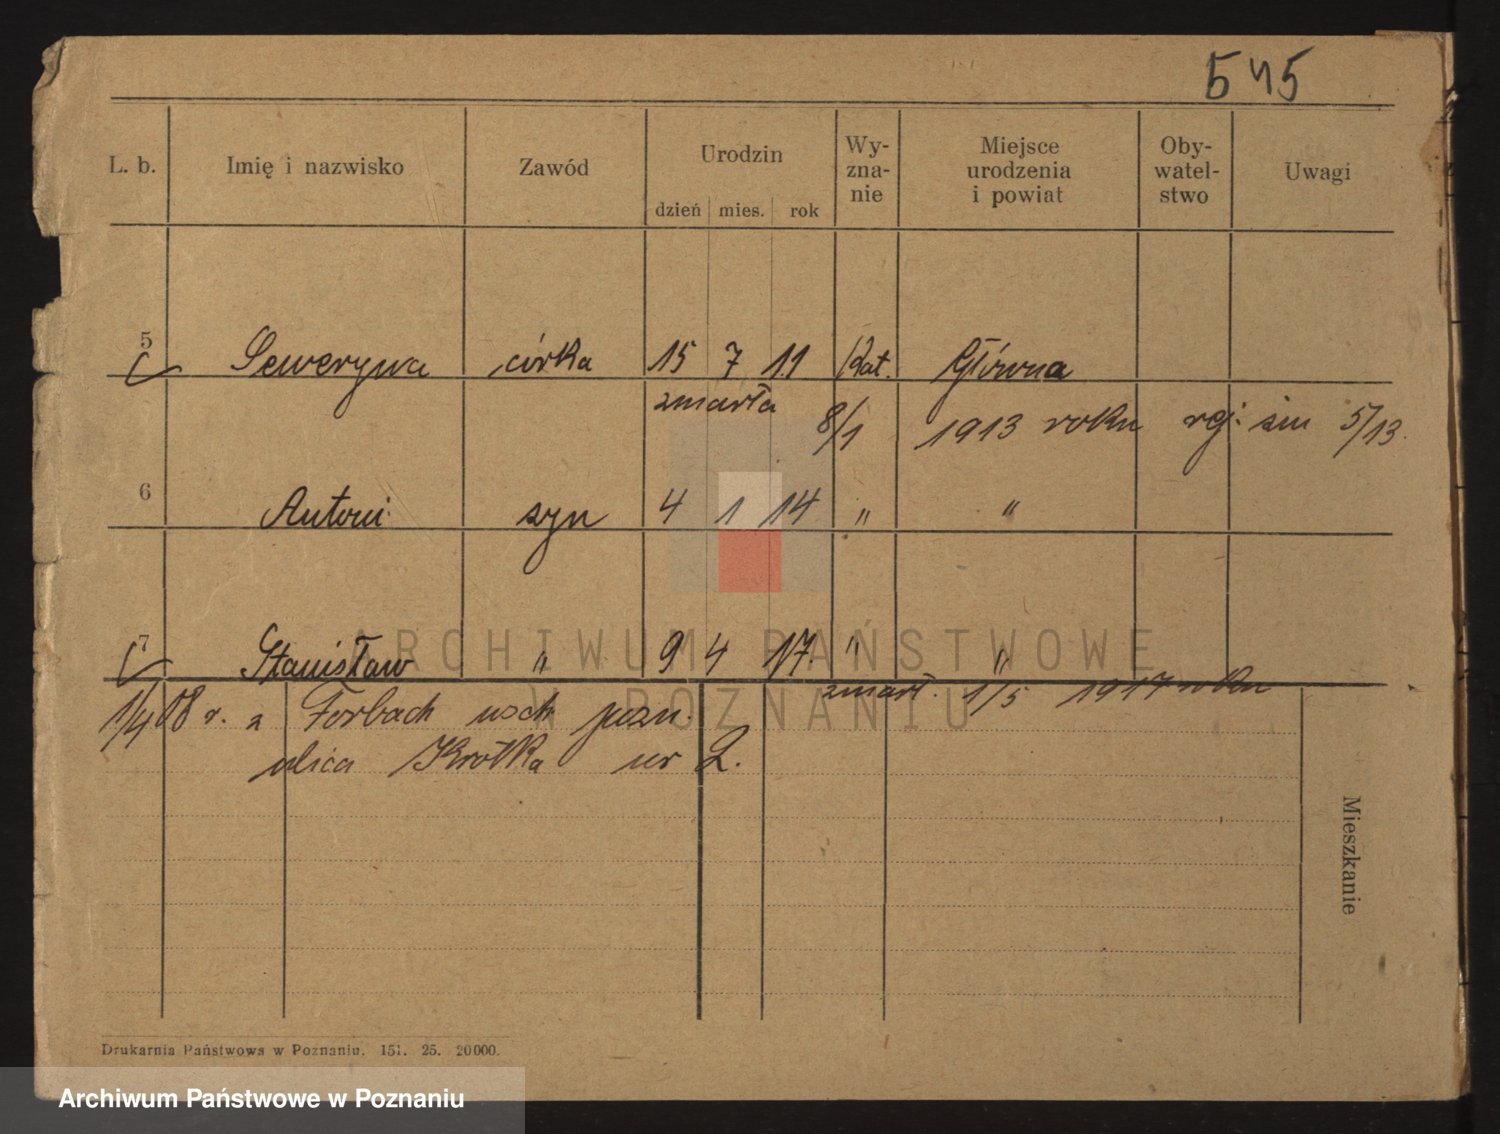 545
L. b. Imię i nazwisko Zawód Urodzin Wy-zna-nie Miejsce urodzenia i powiat Oby-watel-stwo Uwagi
dzień mies. rok
5 Seweryna córka 15 7 11 Kat. Główna
zmarła 8/1 1913 roku rej. śm 5/13.
6 Antoni syn 4 1 14 " "
7 Stanisław " 9 4 17. " "
zmarł. 1/5 1917 roku
1/4 08 r. z Forbach wsch pozn.
ulica Krotka nr 2.
Mieszkanie
ARCHIWUM PAŃSTWOWE
W POZNANIU
Drukarnia Państwowa w Poznaniu. 151. 25. 20000.
Archiwum Państwowe w Poznaniu